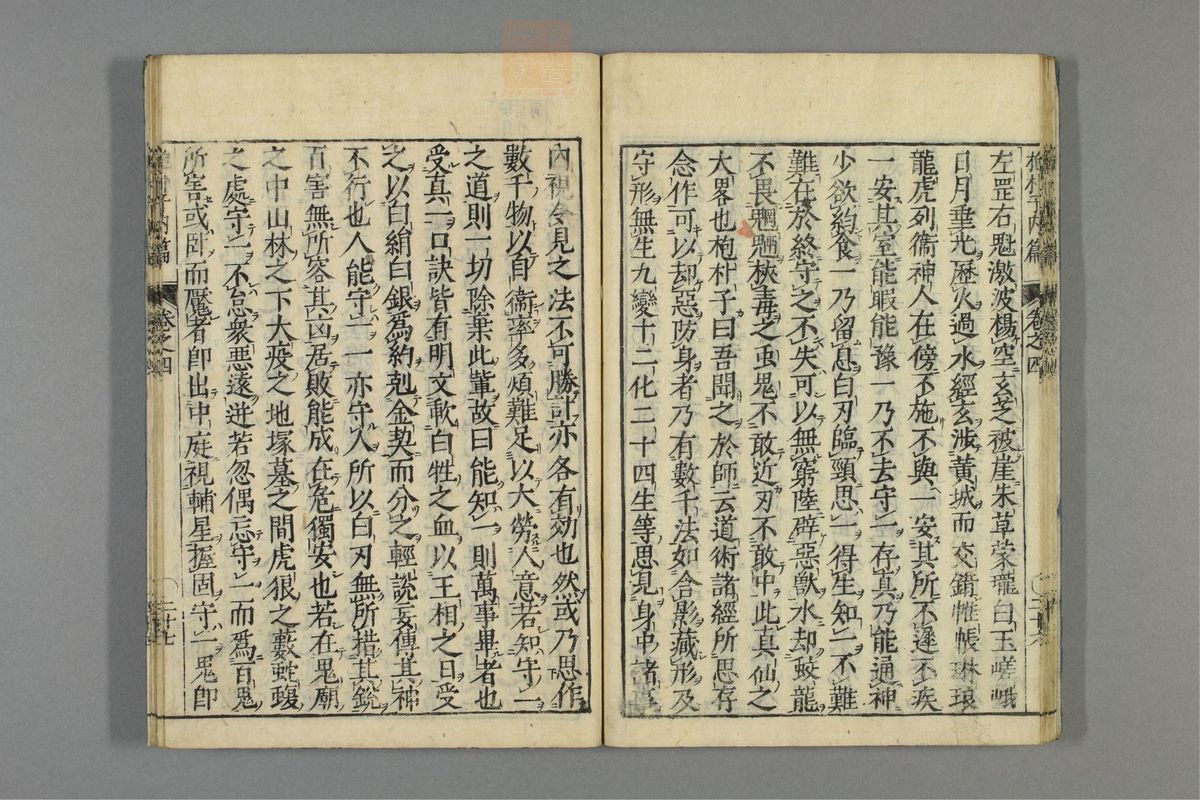 抱朴子內篇 卷之四
左罡右魁激波楊空玄芝被崖朱草䝉瓏白玉嵯峨
日月垂光歷火過水經玄涉黃城闕交錯帷帳琳琅
龍虎列衞神人在傍不施不與一安其所不遲不疾
一安其室能暇能豫一乃不去守一存真乃能通神
少欲約食一乃留息白刃臨頸思一得生知一不難
難在於終守之不失可以無窮陸辟惡獸水却蛟龍
不畏魍魎挾毒之虫鬼不敢近刃不敢中此真仙之
大畧也抱朴子曰吾聞之於師云道術諸經所思存
念作可以却惡防身者乃有數千法如含影藏形及
守形無生九變十二化二十四生等思見身中諸
內視令見之法不可勝計亦各有効也然或乃思作
數千物以自衞率多煩難足以大勞人意若知守一
之道則一切除棄此輩故曰能知一則萬事畢者也
受真一口訣皆有明文歃白牲之血以王相之日受
之以白絹白銀爲約剋金契而分之輕說妄傳其神
不行也人能守一一亦守人所以白刃無所措其銳
百害無所容其凶居敗能成在危獨安也若在鬼廟
之中山林之下大疫之地塚墓之間虎狼之藪蛇蝮
之處守一不怠衆惡遠迸若忽偶忘守一而爲百鬼
所害或卧而魘者卽出中庭視輔星握固守一鬼卽
內篇 卷之四 二十七